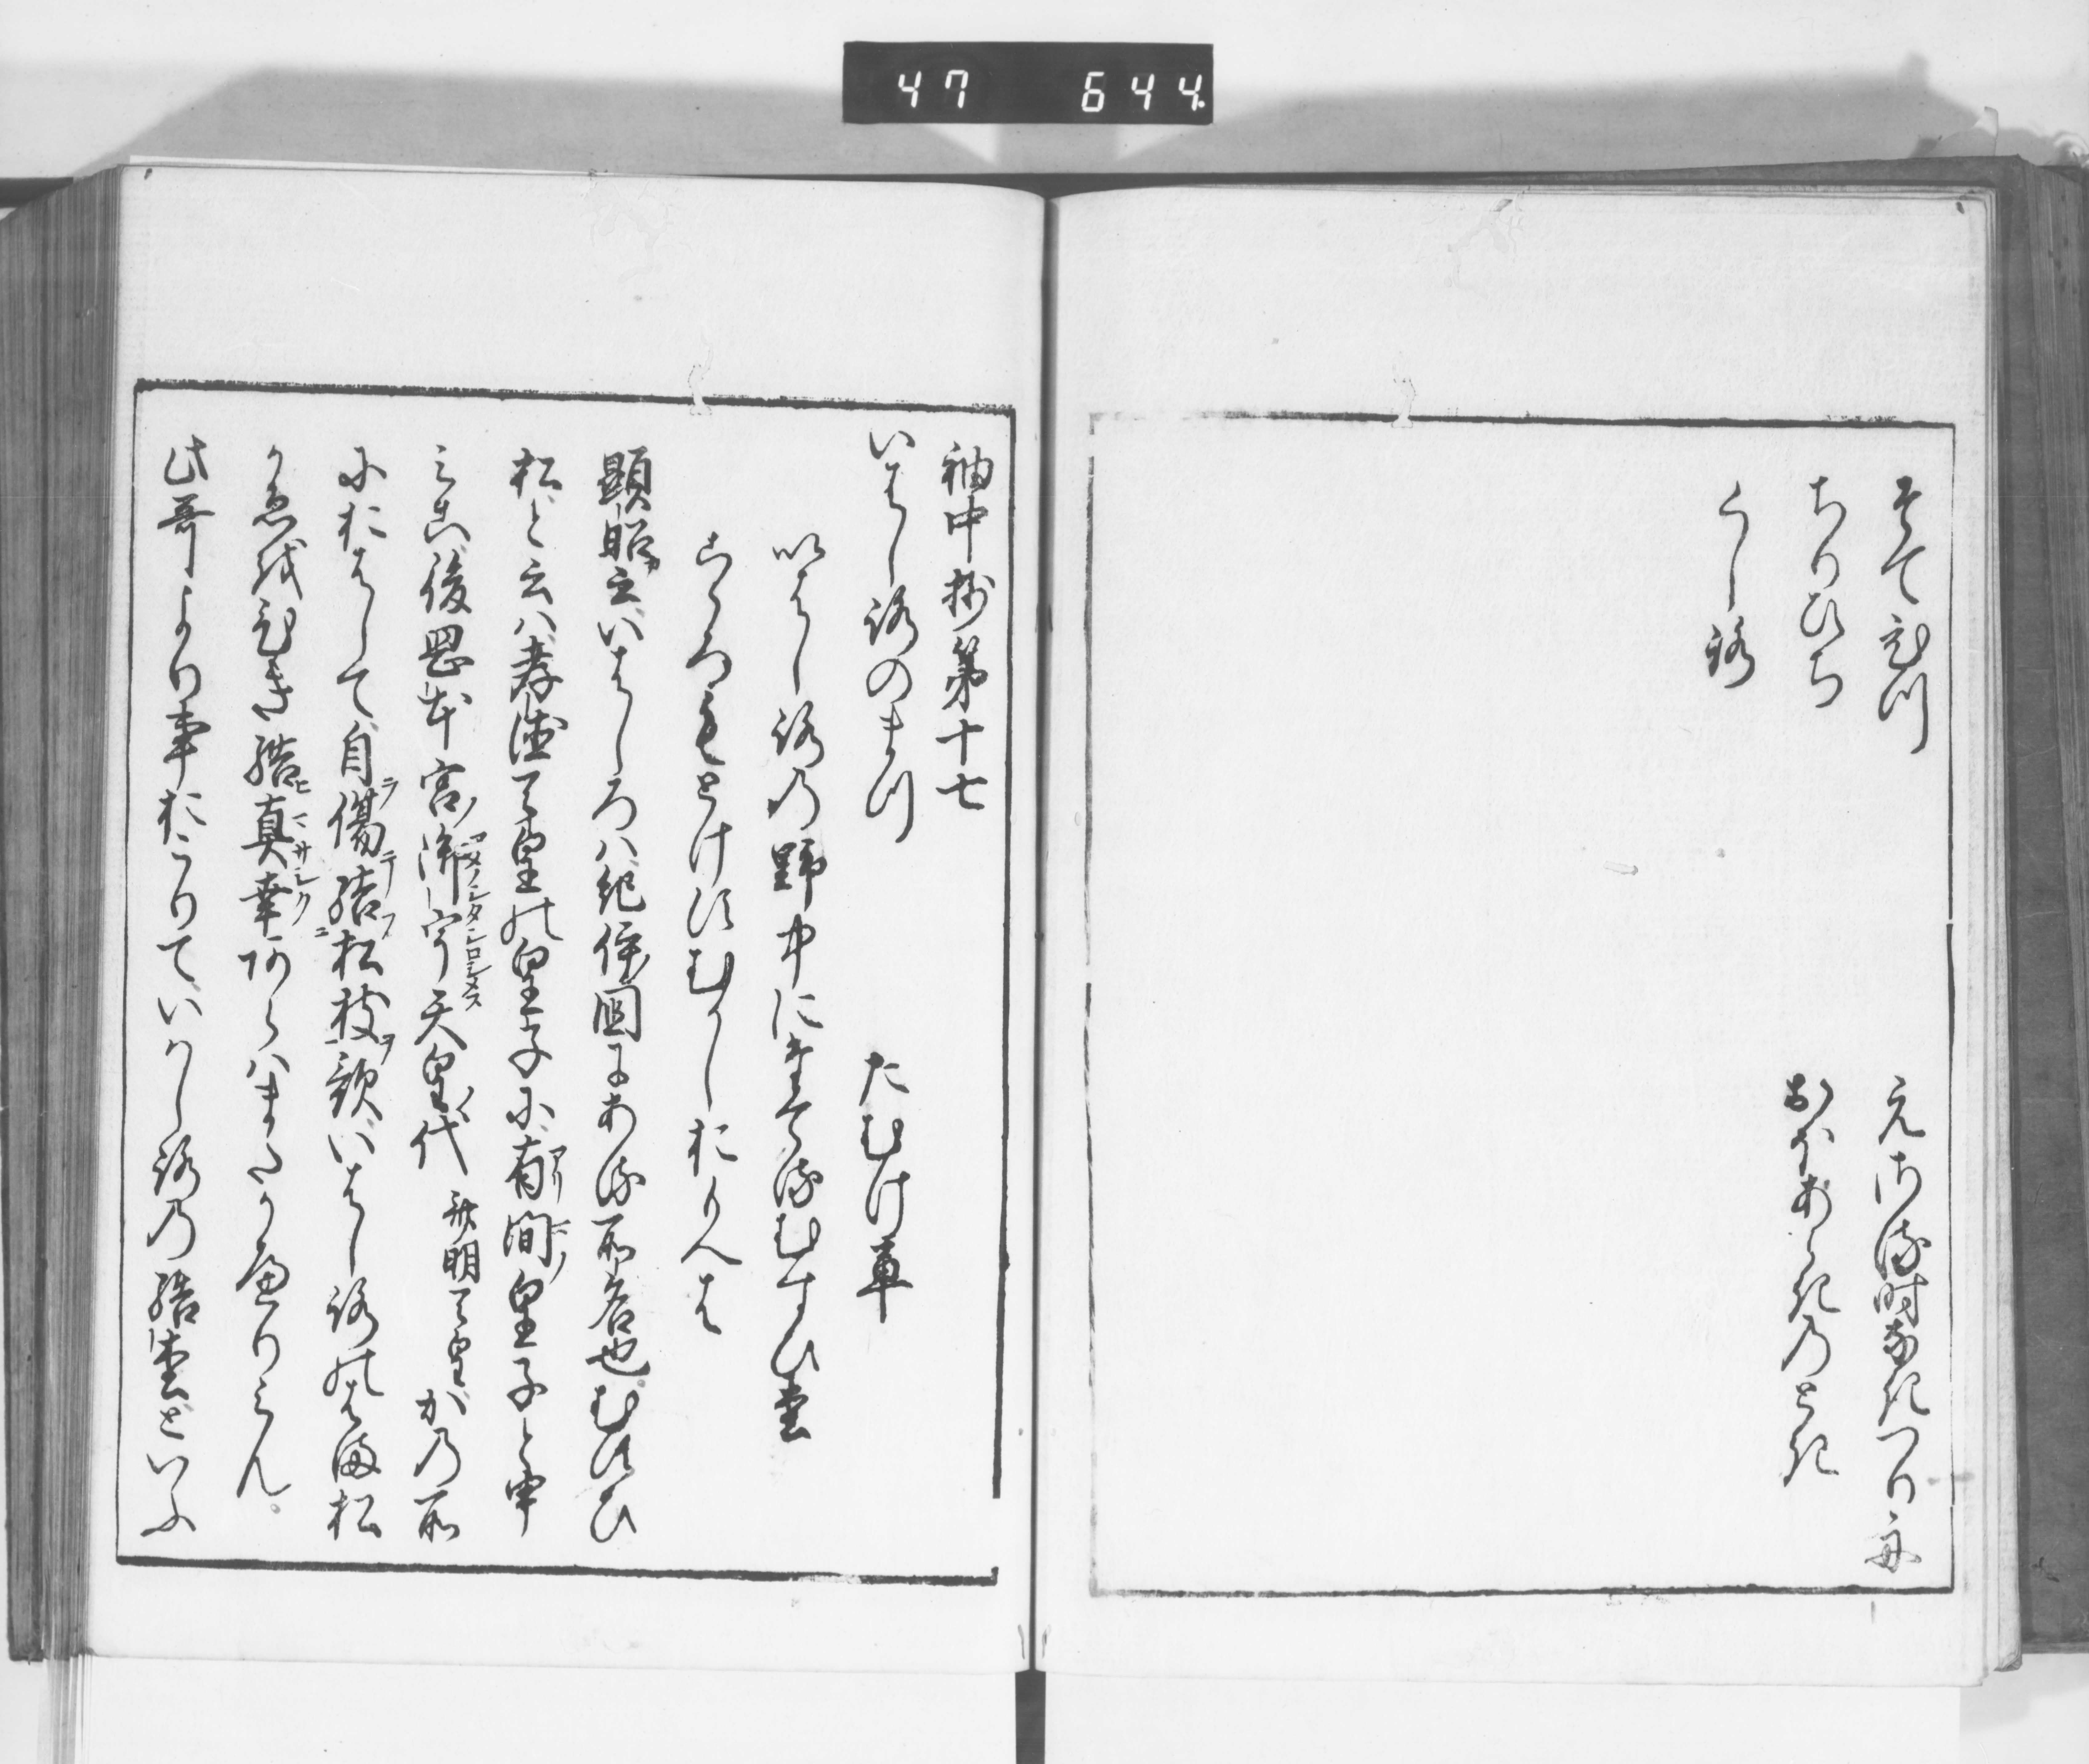 47 644
そてひつ
えさる時なきつりふね
ちりひち
おほあらきのとき
くしろ
袖中抄第十七
いはしろのまつ　たむけ草
いはしろの野中にたてるむすひ松
こゝろもとけすむかしおもへは
顕昭云いはしろハ紀伊国にある所名也むすひ
松と云ハ孝徳天皇の皇子に有間皇子と申
みこ後岡本宮御宇天皇代 斉明天皇 かの所
におはして自傷結松枝歌いはしろのはま松
かえをひき結真幸アラハまたかへりみん
此哥より事おこりていはしろの結松といふ